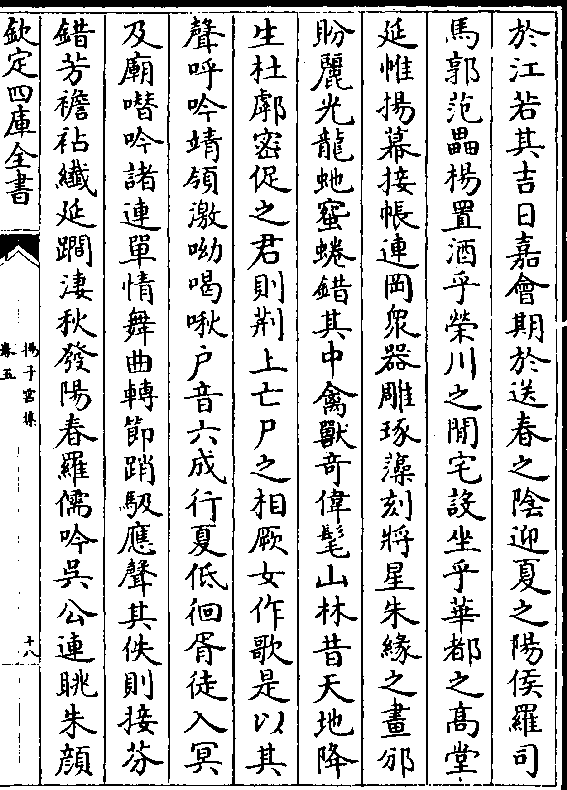 於江若其吉日嘉會期於送春之陰迎夏之陽侯羅司
馬郭范畾楊置酒乎榮川之閒宅設坐乎華都之高堂
延帷揚幕接帳連岡衆器雕琢藻刻將星朱緣之畫邠
盼麗光龍虵蜜蜷錯其中禽獸奇偉髦山林昔天地降
生杜鄠密促之君則荆上亡尸之相厥女作歌是以其
聲呼吟靖領激呦喝啾户音六成行夏低徊胥徒入冥
及廟㗱吟諸連單情舞曲轉節踃馺應聲其佚則接芬
錯芳襜袩纖延躢淒秋發陽春羅儒吟吳公連眺朱顔
欽定四庫全書
揚子雲集
卷五
十八